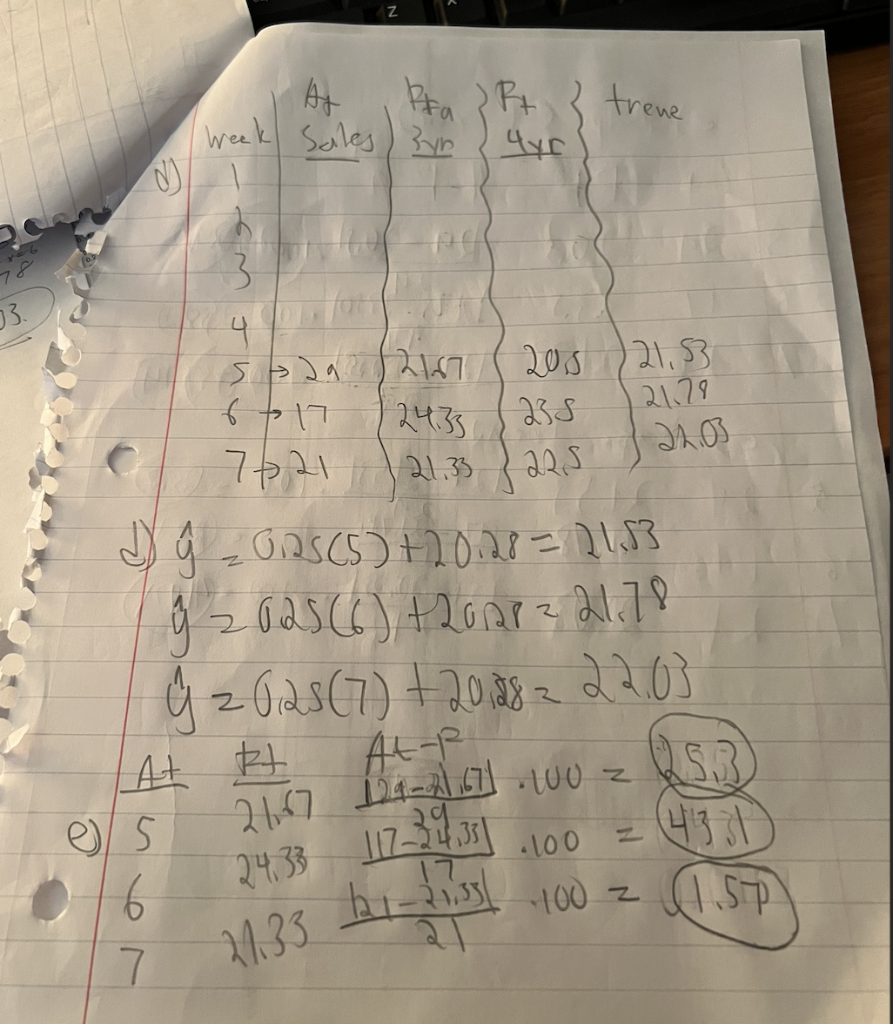 At Fta Ft trene
Week Sales 3yr 4yr
d) 1
2
3
4
5 → 29 21.67 20.5 21.53
6 → 17 24.33 23.5 21.78
7 → 21 21.33 22.5 22.03
d) ŷ = 0.25(5) + 20.28 = 21.53
ŷ = 0.25(6) + 20.28 = 21.78
ŷ = 0.25(7) + 20.28 = 22.03
At Ft At-F
e) 5 21.67 |29-21.67|/29 · 100 = 25.3
6 24.33 |17-24.33|/17 · 100 = 43.1
7 21.33 |21-21.33|/21 · 100 = 1.57
78
03.
Z